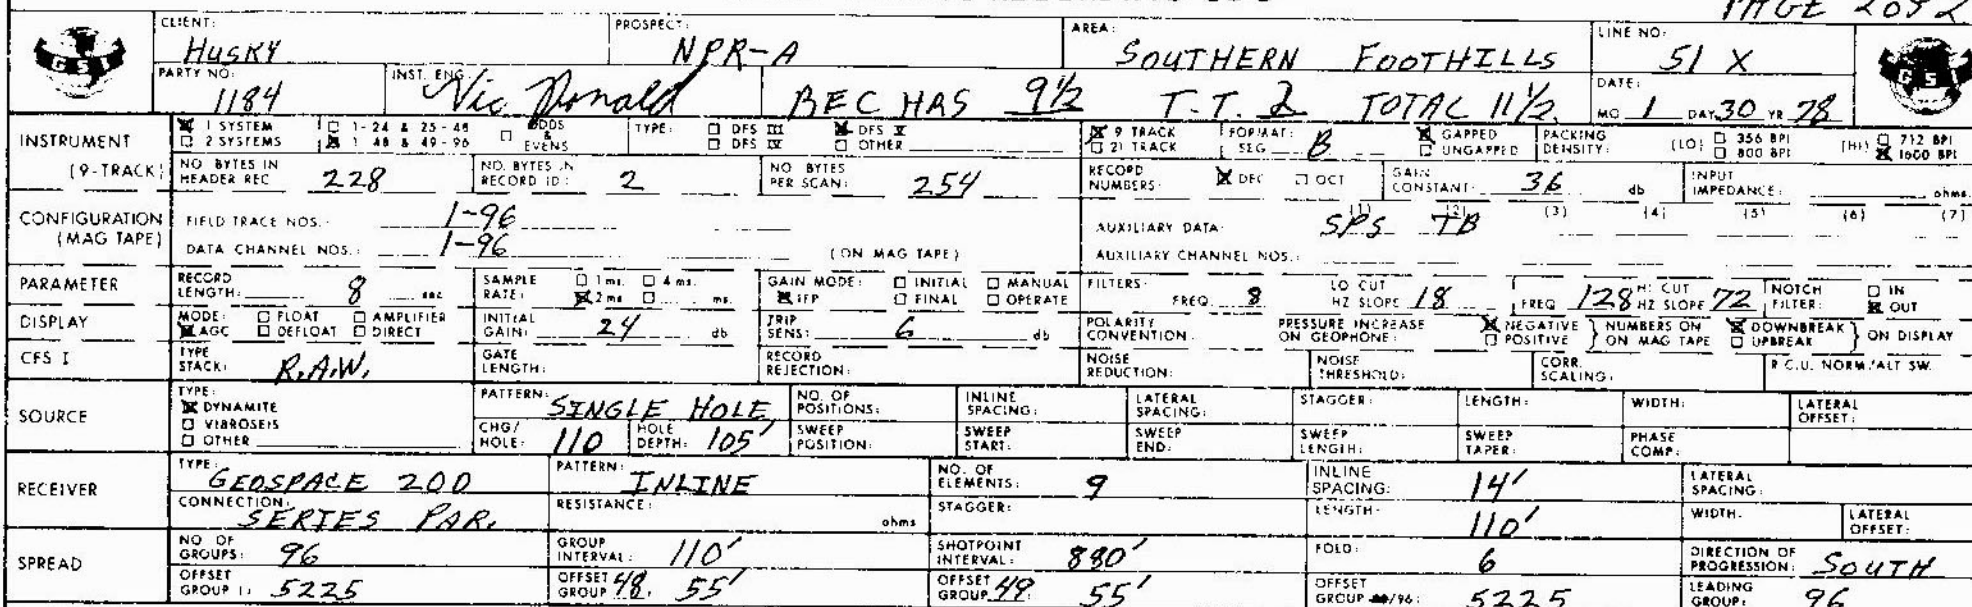 PAGE 2092
CLIENT: HUSKY PROSPECT: NPR-A AREA: SOUTHERN FOOTHILLS LINE NO: 51 X
GSI GSI
PARTY NO: 1184 INST. ENG. Vic Donald REC HAS 9½ T.T. 2 TOTAL 11½ DATE: MO 1 DAY 30 YR 78
INSTRUMENT (9-TRACK) ☒ 1 SYSTEM ☐ 1-24 & 25-48 ☐ ODDS & EVENS TYPE: ☐ DFS III ☒ DFS V ☒ 9 TRACK FORMAT: SEG B ☒ GAPPED PACKING DENSITY: (LO) ☐ 356 BPI (HI) ☐ 712 BPI
☐ 2 SYSTEMS ☒ 1-48 & 49-96 ☐ DFS IV ☐ OTHER ☐ 21 TRACK ☐ UNGAPPED ☐ 800 BPI ☒ 1600 BPI
NO BYTES IN HEADER REC 228 NO. BYTES IN RECORD ID: 2 NO BYTES PER SCAN: 254 RECORD NUMBERS: ☒ DEC ☐ OCT GAIN CONSTANT: 36 db INPUT IMPEDANCE: ohms.
CONFIGURATION (MAG TAPE) FIELD TRACE NOS.: 1-96 AUXILIARY DATA: (1) SPS (2) TB (3) (4) (5) (6) (7)
DATA CHANNEL NOS.: 1-96 (ON MAG TAPE) AUXILIARY CHANNEL NOS.:
PARAMETER RECORD LENGTH: 8 sec SAMPLE RATE: ☐ 1 ms. ☐ 4 ms. ☒ 2 ms ☐ ms. GAIN MODE: ☐ INITIAL ☐ MANUAL ☒ IFP ☐ FINAL ☐ OPERATE FILTERS: FREQ. 8 LO CUT HZ SLOPE 18 FREQ 128 HI CUT HZ SLOPE 72 NOTCH FILTER: ☐ IN ☒ OUT
DISPLAY MODE: ☐ FLOAT ☐ AMPLIFIER ☒ AGC ☐ DEFLOAT ☐ DIRECT INITIAL GAIN: 24 db TRIP SENS: 6 db POLARITY CONVENTION: PRESSURE INCREASE ON GEOPHONE: ☒ NEGATIVE ☐ POSITIVE } NUMBERS ON MAG TAPE ☒ DOWNBREAK ☐ UPBREAK } ON DISPLAY
CFS I TYPE STACK: R.A.W. GATE LENGTH: RECORD REJECTION: NOISE REDUCTION: NOISE THRESHOLD: CORR. SCALING: R.C.U. NORM./ALT SW.
SOURCE TYPE: ☒ DYNAMITE ☐ VIBROSEIS ☐ OTHER PATTERN: SINGLE HOLE NO. OF POSITIONS: INLINE SPACING: LATERAL SPACING: STAGGER: LENGTH: WIDTH: LATERAL OFFSET:
CHG/HOLE: 110 HOLE DEPTH: 105' SWEEP POSITION: SWEEP START: SWEEP END: SWEEP LENGTH: SWEEP TAPER: PHASE COMP:
RECEIVER TYPE: GEOSPACE 200 PATTERN: INLINE NO. OF ELEMENTS: 9 INLINE SPACING: 14' LATERAL SPACING:
CONNECTION: SERIES PAR. RESISTANCE: ohms STAGGER: LENGTH: 110' WIDTH: LATERAL OFFSET:
SPREAD NO OF GROUPS: 96 GROUP INTERVAL: 110' SHOTPOINT INTERVAL: 880' FOLD: 6 DIRECTION OF PROGRESSION: SOUTH
OFFSET GROUP 1: 5225 OFFSET GROUP 48: 55' OFFSET GROUP 49: 55' OFFSET GROUP /96: 5225 LEADING GROUP: 96